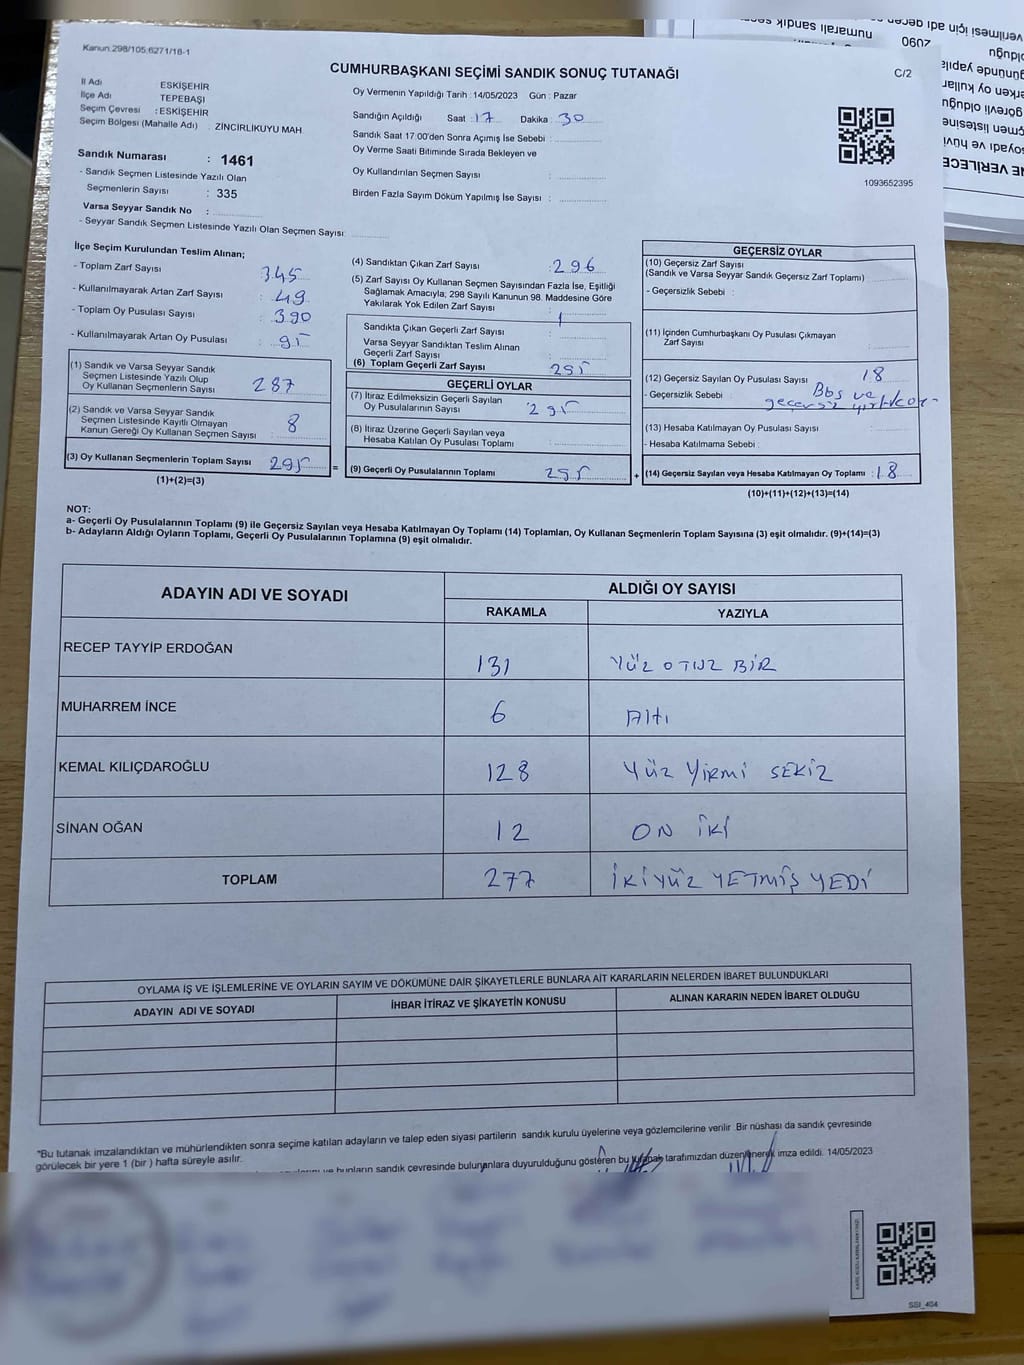 Kanun:298/105;6271/18-1
CUMHURBAŞKANI SEÇİMİ SANDIK SONUÇ TUTANAĞI
C/2
İl Adı ESKİŞEHİR
İlçe Adı TEPEBAŞI
Seçim Çevresi : ESKİŞEHİR
Seçim Bölgesi (Mahalle Adı) : ZİNCİRLİKUYU MAH.
Sandık Numarası : 1461
- Sandık Seçmen Listesinde Yazılı Olan
Seçmenlerin Sayısı : 335
Varsa Seyyar Sandık No :
- Seyyar Sandık Seçmen Listesinde Yazılı Olan Seçmen Sayısı:
Oy Vermenin Yapıldığı Tarih : 14/05/2023 Gün : Pazar
Sandığın Açıldığı Saat : 17 Dakika : 30
Sandık Saat 17:00'den Sonra Açımış İse Sebebi :
Oy Verme Saati Bitiminde Sırada Bekleyen ve
Oy Kullandırılan Seçmen Sayısı :
Birden Fazla Sayım Döküm Yapılmış İse Sayısı :
1093652395
İlçe Seçim Kurulundan Teslim Alınan;
- Toplam Zarf Sayısı 345
- Kullanılmayarak Artan Zarf Sayısı : 49
- Toplam Oy Pusulası Sayısı : 390
- Kullanılmayarak Artan Oy Pusulası : 95
(1) Sandık ve Varsa Seyyar Sandık
Seçmen Listesinde Yazılı Olup
Oy Kullanan Seçmenlerin Sayısı 287
(2) Sandık ve Varsa Seyyar Sandık
Seçmen Listesinde Kayıtlı Olmayan
Kanun Gereği Oy Kullanan Seçmen Sayısı : 8
(3) Oy Kullanan Seçmenlerin Toplam Sayısı 295
(1)+(2)=(3)
(4) Sandıktan Çıkan Zarf Sayısı : 296
(5) Zarf Sayısı Oy Kullanan Seçmen Sayısından Fazla İse, Eşitliği
Sağlamak Amacıyla; 298 Sayılı Kanunun 98. Maddesine Göre
Yakılarak Yok Edilen Zarf Sayısı : 1
Sandıkta Çıkan Geçerli Zarf Sayısı :
Varsa Seyyar Sandıktan Teslim Alınan
Geçerli Zarf Sayısı :
(6) Toplam Geçerli Zarf Sayısı 295
GEÇERLİ OYLAR
(7) İtiraz Edilmeksizin Geçerli Sayılan
Oy Pusulalarının Sayısı : 295
(8) İtiraz Üzerine Geçerli Sayılan veya
Hesaba Katılan Oy Pusulası Toplamı :
= (9) Geçerli Oy Pusulalarının Toplamı 295
GEÇERSİZ OYLAR
(10) Geçersiz Zarf Sayısı
(Sandık ve Varsa Seyyar Sandık Geçersiz Zarf Toplamı) :
- Geçersizlik Sebebi :
(11) İçinden Cumhurbaşkanı Oy Pusulası Çıkmayan
Zarf Sayısı :
(12) Geçersiz Sayılan Oy Pusulası Sayısı 18
- Geçersizlik Sebebi : ve
geçersiz
(13) Hesaba Katılmayan Oy Pusulası Sayısı :
- Hesaba Katılmama Sebebi :
+ (14) Geçersiz Sayılan veya Hesaba Katılmayan Oy Toplamı : 18
(10)+(11)+(12)+(13)=(14)
NOT:
a- Geçerli Oy Pusulalarının Toplamı (9) ile Geçersiz Sayılan veya Hesaba Katılmayan Oy Toplamı (14) Toplamları, Oy Kullanan Seçmenlerin Toplam Sayısına (3) eşit olmalıdır. (9)+(14)=(3)
b- Adayların Aldığı Oyların Toplamı, Geçerli Oy Pusulalarının Toplamına (9) eşit olmalıdır.
ADAYIN ADI VE SOYADI
ALDIĞI OY SAYISI
RAKAMLA YAZIYLA
RECEP TAYYİP ERDOĞAN 131 YÜZ OTUZ BİR
MUHARREM İNCE 6 Altı
KEMAL KILIÇDAROĞLU 128 YÜZ YİRMİ SEKİZ
SİNAN OĞAN 12 ON İKİ
TOPLAM 277 İKİYÜZ YETMİŞ YEDİ
OYLAMA İŞ VE İŞLEMLERİNE VE OYLARIN SAYIM VE DÖKÜMÜNE DAİR ŞİKAYETLERLE BUNLARA AİT KARARLARIN NELERDEN İBARET BULUNDUKLARI
ADAYIN ADI VE SOYADI İHBAR İTİRAZ VE ŞİKAYETİN KONUSU ALINAN KARARIN NEDEN İBARET OLDUĞU
"Bu tutanak imzalandıktan ve mühürlendikten sonra seçime katılan adayların ve talep eden siyasi partilerin sandık kurulu üyelerine veya gözlemcilerine verilir Bir nüshası da sandık çevresinde
görülecek bir yere 1 (bir ) hafta süreyle asılır.
ve bunların sandık çevresinde bulunanlara duyurulduğunu gösteren bu tutanak tarafımızdan düzenlenerek imza edildi. 14/05/2023
SSI_404